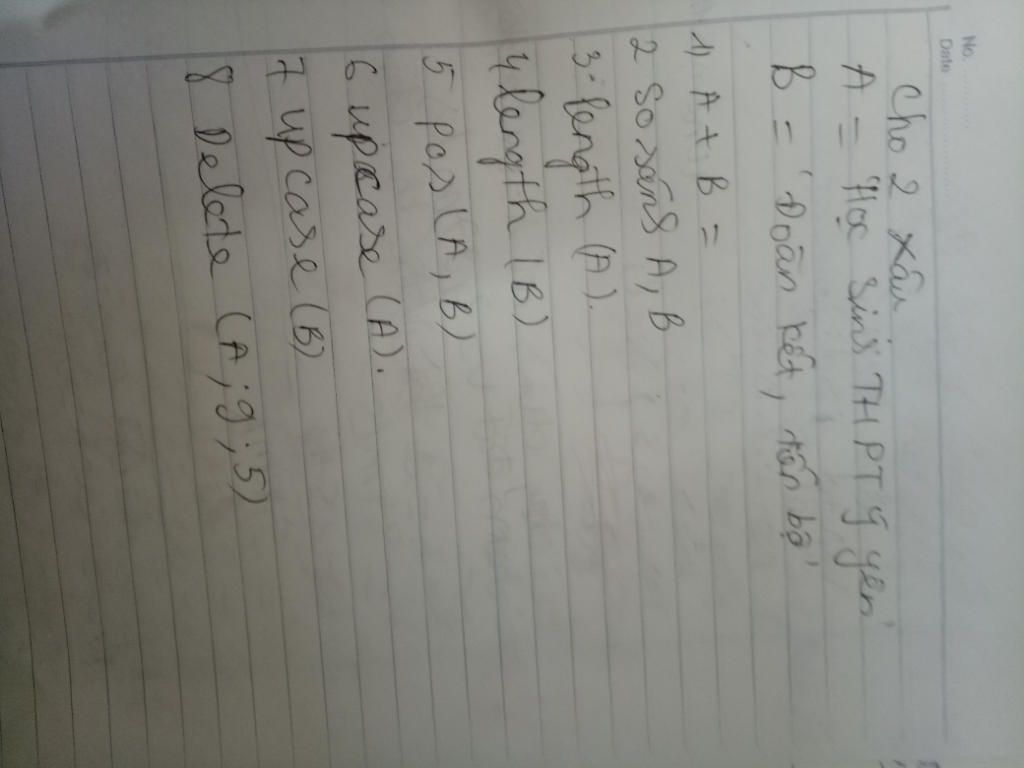 No.
Date
Cho 2 xâu
A = 'Học sinh THPT Ý Yên'
B = 'Đoàn kết, tiến bộ'
1) A + B =
2 So sánh A, B
3. length (A).
4 length (B)
5 Pos (A, B)
6 upcase (A).
7 upcase (B)
8 Delete (A ; 9 ; 5)